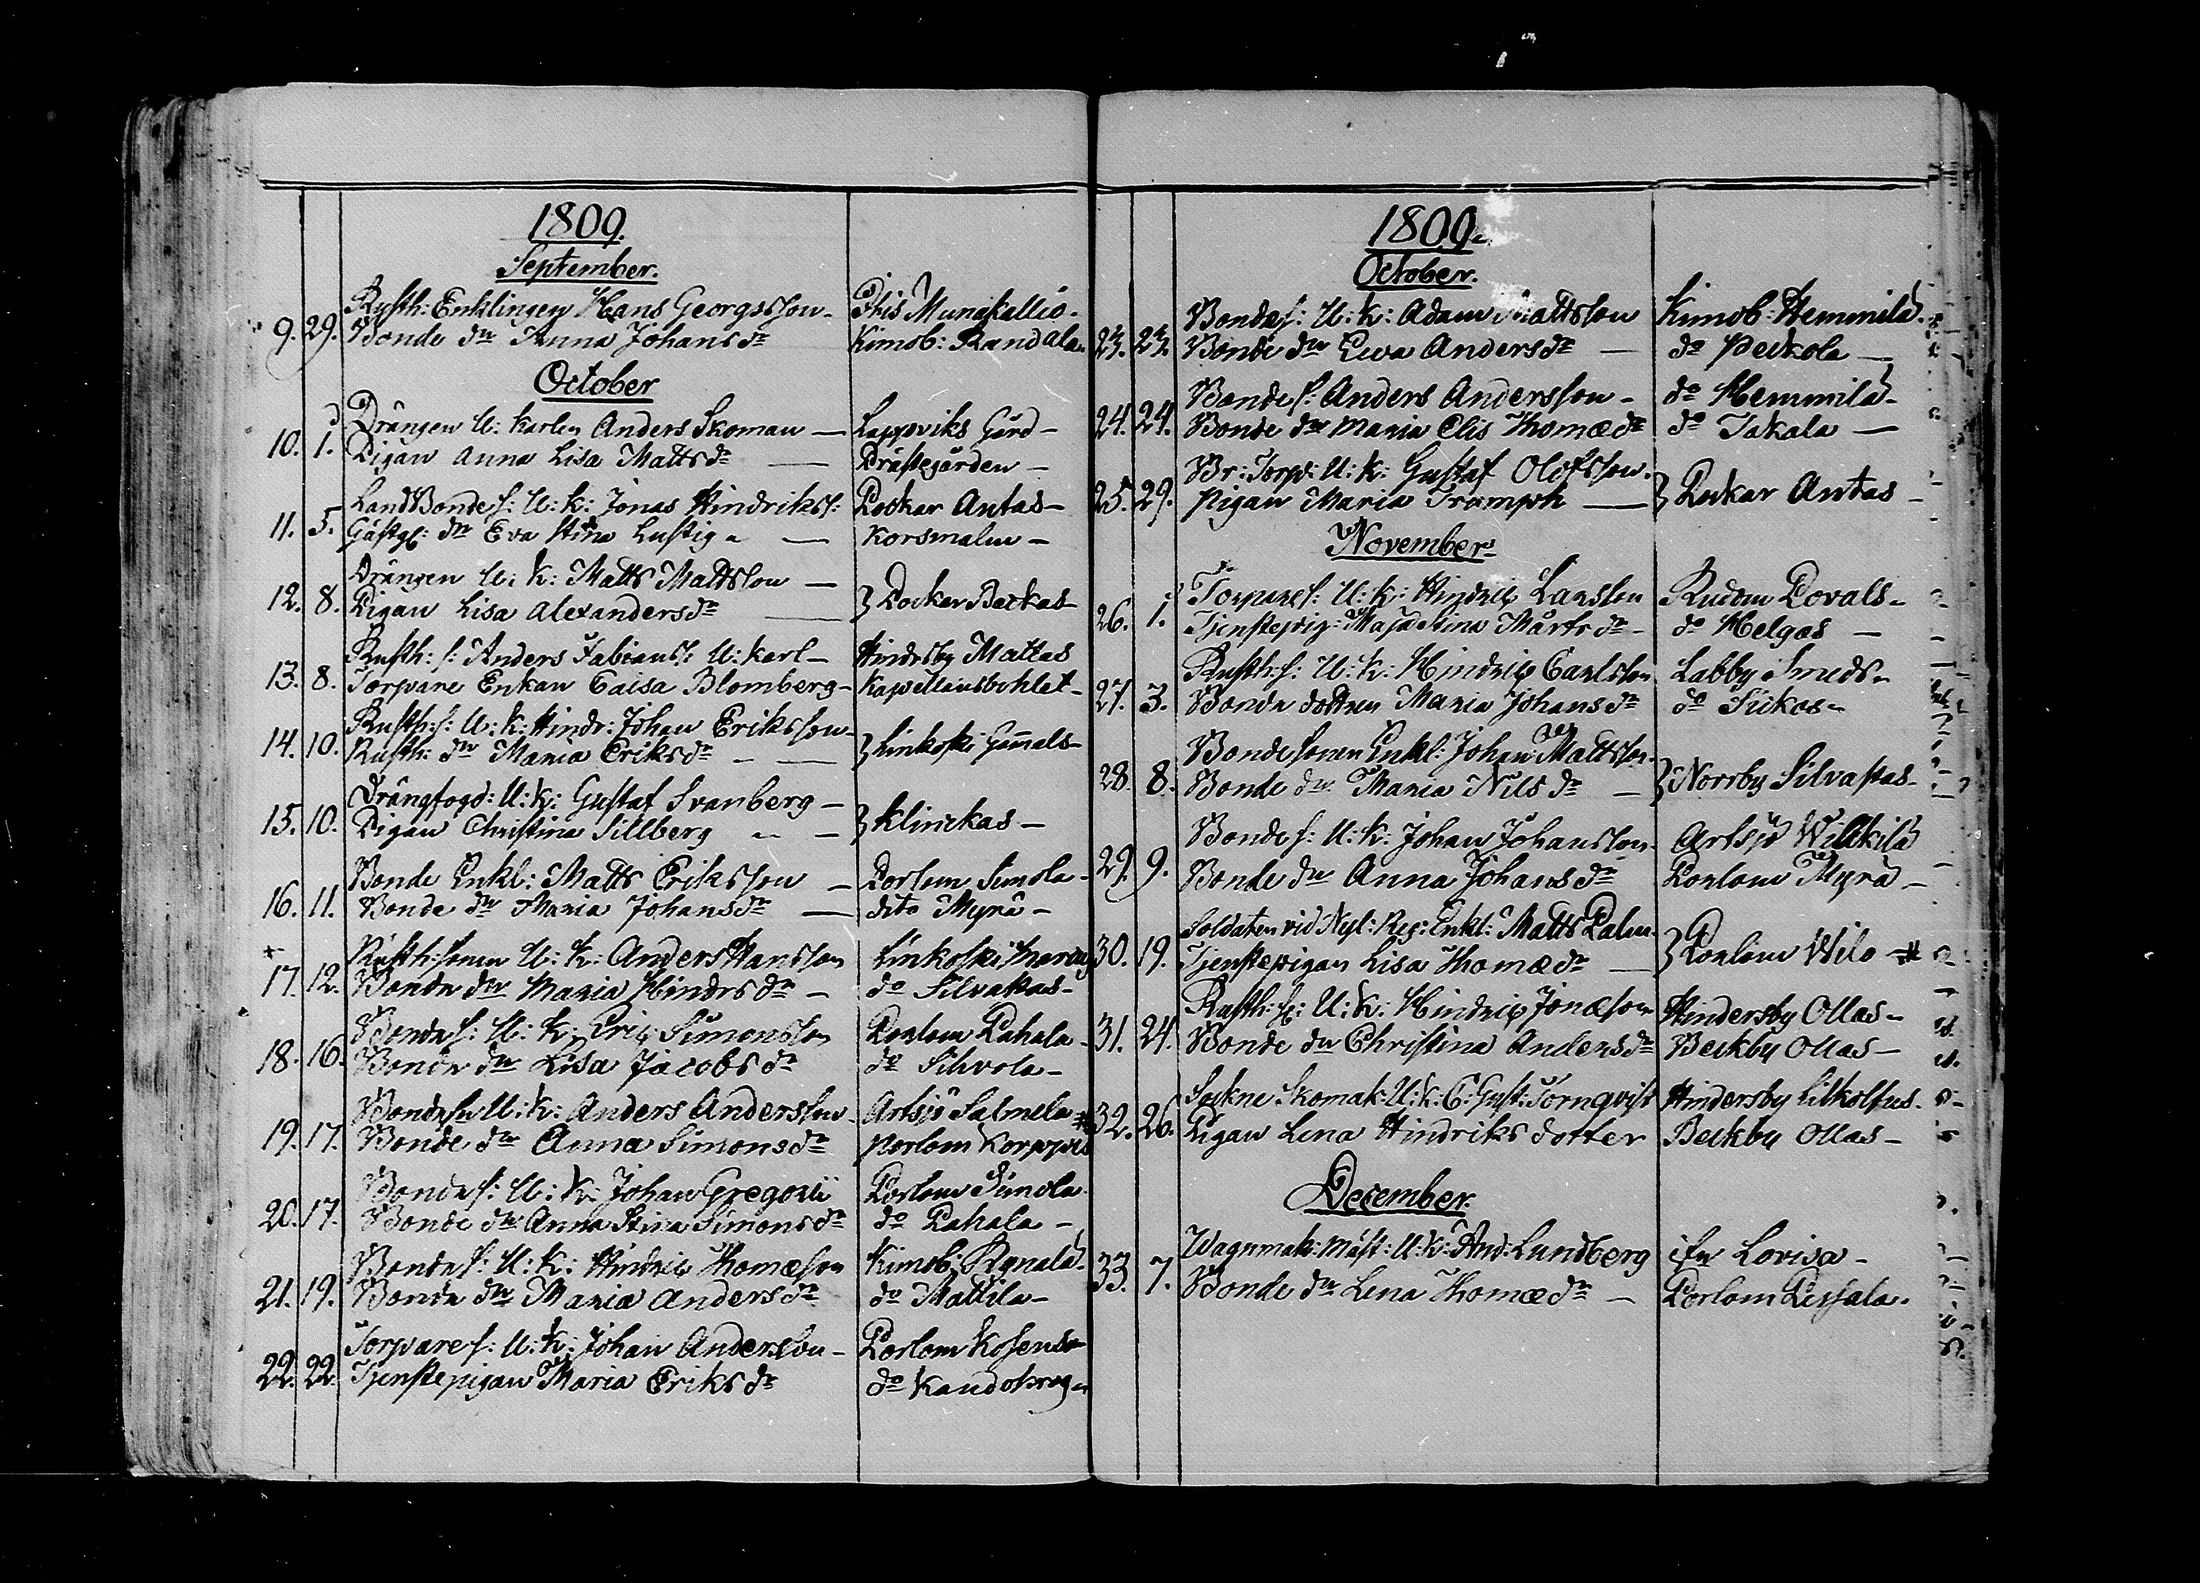 1809.
September.
9. 29. Rusth: Enklingen Hans Georgsson - This Munkellis -
Bonde dr Anna Johans dr Kimob: Randala
October
10. 1. Drängen U: Karlen Anders Skoman — Lappviks Gård -
Pigan Anna Lisa Matts dr — Prästegården -
11. 5. LandBonde s: U: K: Jonas Hindrikss: Pockar Antas -
Gästg: dr Eva Stina Lustig — Korsmalm -
12. 8. Drängen U: K: Matts Mattsson — } Pockar Backas -
Pigan Lisa Alexanders dr —
13. 8. Rusth: s: Anders Fabianss: U: karl - Hindsby Mattas
Torpare Enkan Caisa Blomberg - Kapellansbohlet -
14. 10. Rusth: s: U: K: Hindr: Johan Eriksson - } Linkoski Gamals -
Rusth: dr Maria Eriks dr —
15. 10. Drängfogd: U: K: Gustaf Svanberg - } Klinckas -
Pigan Christina Sillberg —
16. 11. Bonde Enkl: Matts Eriksson - Porlom Simola -
Bonde dr Maria Johans dr — dito Myrä -
+
17. 12. Rusth: sonen U: K: Anders Hansson Linkoski
Bonde dr Maria Hindrs dr - do Silvastas -
18. 16. Bonde s: U: K: Eric Simonsson Porlom Pahala -
Bonde dr Lisa Jacobs dr do Sihvola -
19. 17. Bonde sn U: K: Anders Andersson - Artsjö Salmela #
Bonde dr Anna Simons dr Porlom Korppis
20. 17. Bonde s: U: K: Johan Gregorii Porlom Simola
Bonde dr Anna Stina Simons dr do Pahala -
21. 19. Bonde s: U: K: Hindric Thomæson Kimob: Rynälä -
Bonde dr Maria Anders dr do Mattila -
22. 22. Torpare s: U: K: Johan Andersson - Porlom Kosens
Tjenstepigan Maria Eriks dr do
1809.
October.
23. 23. Bonde s: U: K: Adam Mattsson Kimob: Hemmilä.
Bonde dr Ewa Anders dr — do Peckola —
24. 24. Bonde s: Anders Andersson - do Hemmilä -
Bonde dr Maria Elis Thomæ dr do Jakala —
25. 29. Br: Torp: U: K: Gustaf Olofsson. } Pockar Antas -
Pigan Maria Tramph —
November
26. 1. Torpare s: U: K: Hindric Larsson Rudom Povals -
Tjenstepig: Maja Stina Mårts dr - do Helgas —
27. 3. Rusth: s: U: K: Hindric Carlsson Labby Smeds -
Bonde dottren Maria Johans dr do Siikos -
28. 8. Bonde sonen Enkl: Johan Mattsson. } Norrby Silvastas -
Bonde dr Maria Nils dr —
29. 9. Bonde s: U: K: Johan Johansson. Artsjö Wilkilä
Bonde dr Anna Johans dr Porlom Myrä -
30. 19. Soldaten vid Nyl: Reg: Enkl: Matts Palm. } Porlom Wilo #
Tjenstepigan Lisa Thomæ dr —
31. 24. Rusth: s: U: K: Hindric Jonæson Hindersby Ollas -
Bonde dr Christina Anders dr Beckby Ollas -
32. 26. Sockne Skomak: U: K: C: Gust: Törnqvist Hindersby Lilkolfus.
Pigan Lena Hindriks dotter Beckby Ollas -
December.
33. 7. Wagnmak: Mäst: U: K: And: Lundberg ifr Lovisa -
Bonde dr Lena Thomæ dr — Porlom Pessala.